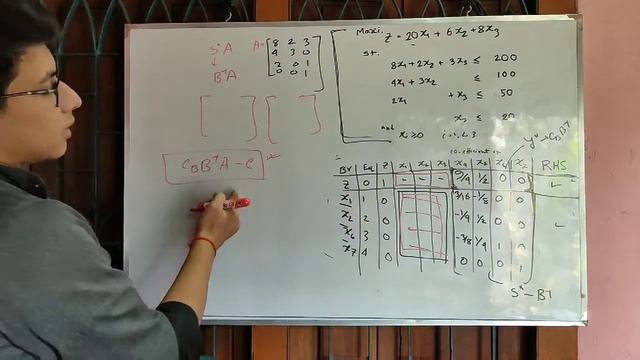 S*A
↓
B⁻¹A
A = [ 8 2 3
4 3 0
2 0 1
0 0 1 ]
C_B B⁻¹A - C
Maxi. Z = 20x₁ + 6x₂ + 8x₃
st.
8x₁ + 2x₂ + 3x₃ ≤ 200
4x₁ + 3x₂ ≤ 100
2x₁ + x₃ ≤ 50
x₃ ≤ 20
and xᵢ ≥ 0 i = 1, 2, 3
y* → C_B B⁻¹
co-efficient on
BV Eq Z x₁ x₂ x₃ x₄ x₅ x₆ x₇ RHS
Z 0 1 - - - 9/4 1/2 0 0 ✓
x₁ 1 0 3/16 -1/8 0 0
x₂ 2 0 -1/4 1/2 0 0 ✓
x₆ 3 0 -3/8 1/4 1 0
x₇ 4 0 0 0 0 1
S* - B⁻¹